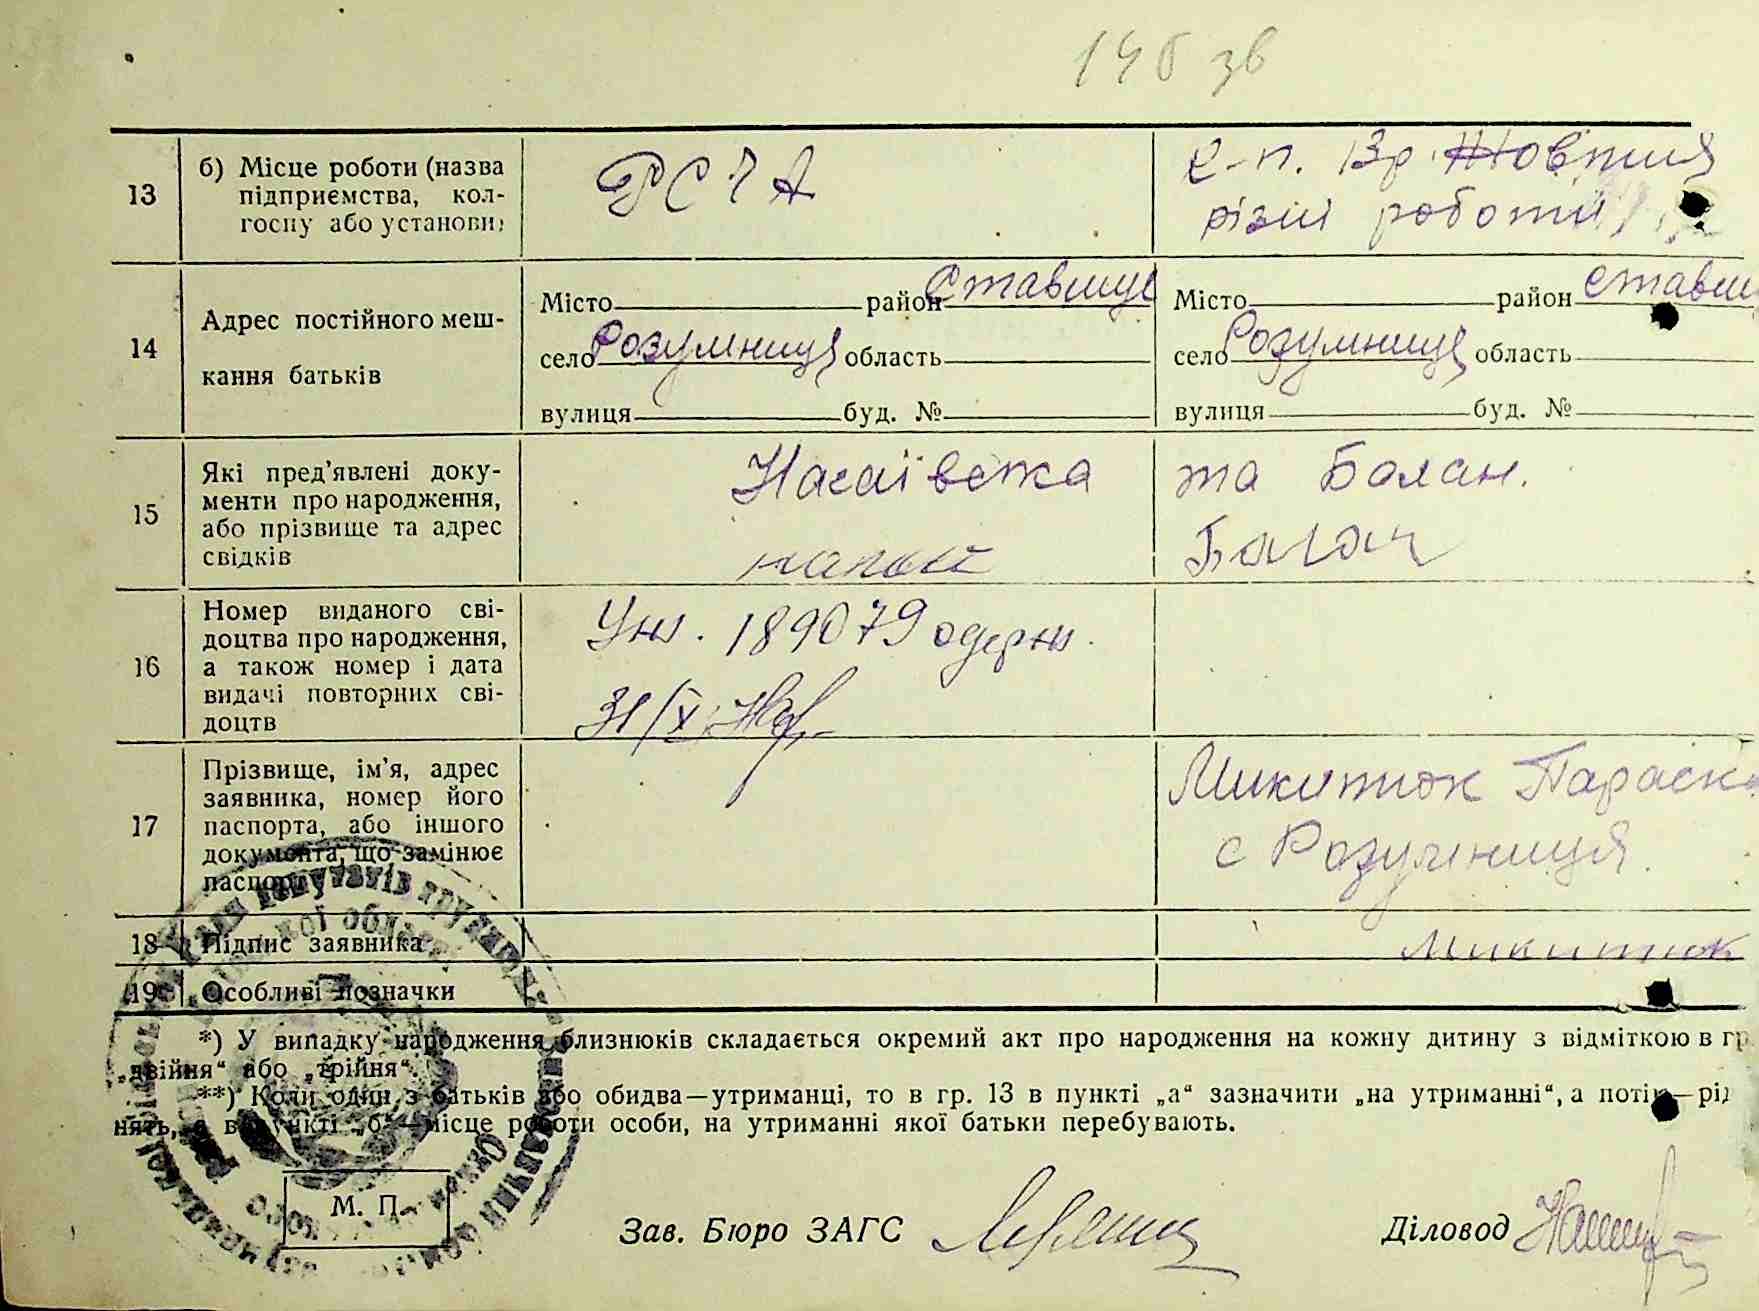 146 зв
13
б) Місце роботи (назва
підприємства, кол-
госпу або установи)
РСЧА
Жовтня
різні роботи
14
Адрес постійного меш-
кання батьків
Місто район Ставище
село Розумниця область
вулиця буд. №
Місто район Стави
село Розумниця область
вулиця буд. №
15
Які пред’явлені доку-
менти про народження,
або прізвище та адрес
свідків
Нагаївська та Балан.
Балан
16
Номер виданого сві-
доцтва про народження,
а також номер і дата
видачі повторних сві-
доцтв
189079 одерж.
31/X
17
Прізвище, ім’я, адрес
заявника, номер його
паспорта, або іншого
документа, що замінює
паспорт
Микитюк Параск
с Розумниця
18
Підпис заявника
Микитюк
19
Особливі позначки
*) У випадку народження близнюків складається окремий акт про народження на кожну дитину з відміткою в гр.
„двійня“ або „трійня“.
**) Коли один з батьків або обидва—утриманці, то в гр. 13 в пункті „а“ зазначити „на утриманні“, а потім—рід
нять, а в пункті „б“—місце роботи особи, на утриманні якої батьки перебувають.
М. П.
Зав. Бюро ЗАГС
Діловод